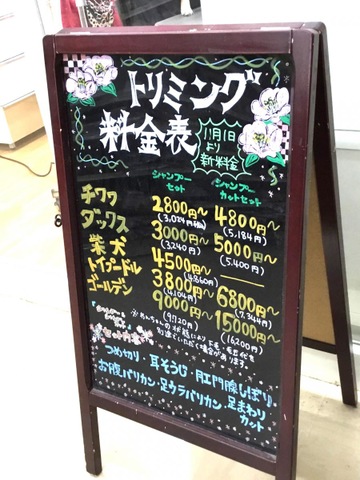 トリミング
料金表
11月1日
より
新料金
シャンプー
セット
シャンプー
カットセット
チワワ 2800円〜 4800円〜
(3,024円税込) (5,184円)
ダックス 3000円〜 5000円〜
(3240円) (5,400円)
柴犬 4500円〜
(4860円)
トイプードル 3800円〜 6800円〜
(4104円) (7,344円)
ゴールデン 9000円〜 15000円〜
(9,720円) (16200円)
つめ切り・耳そうじ・肛門腺しぼり・
お腹バリカン・足ウラバリカン・足まわり
カット